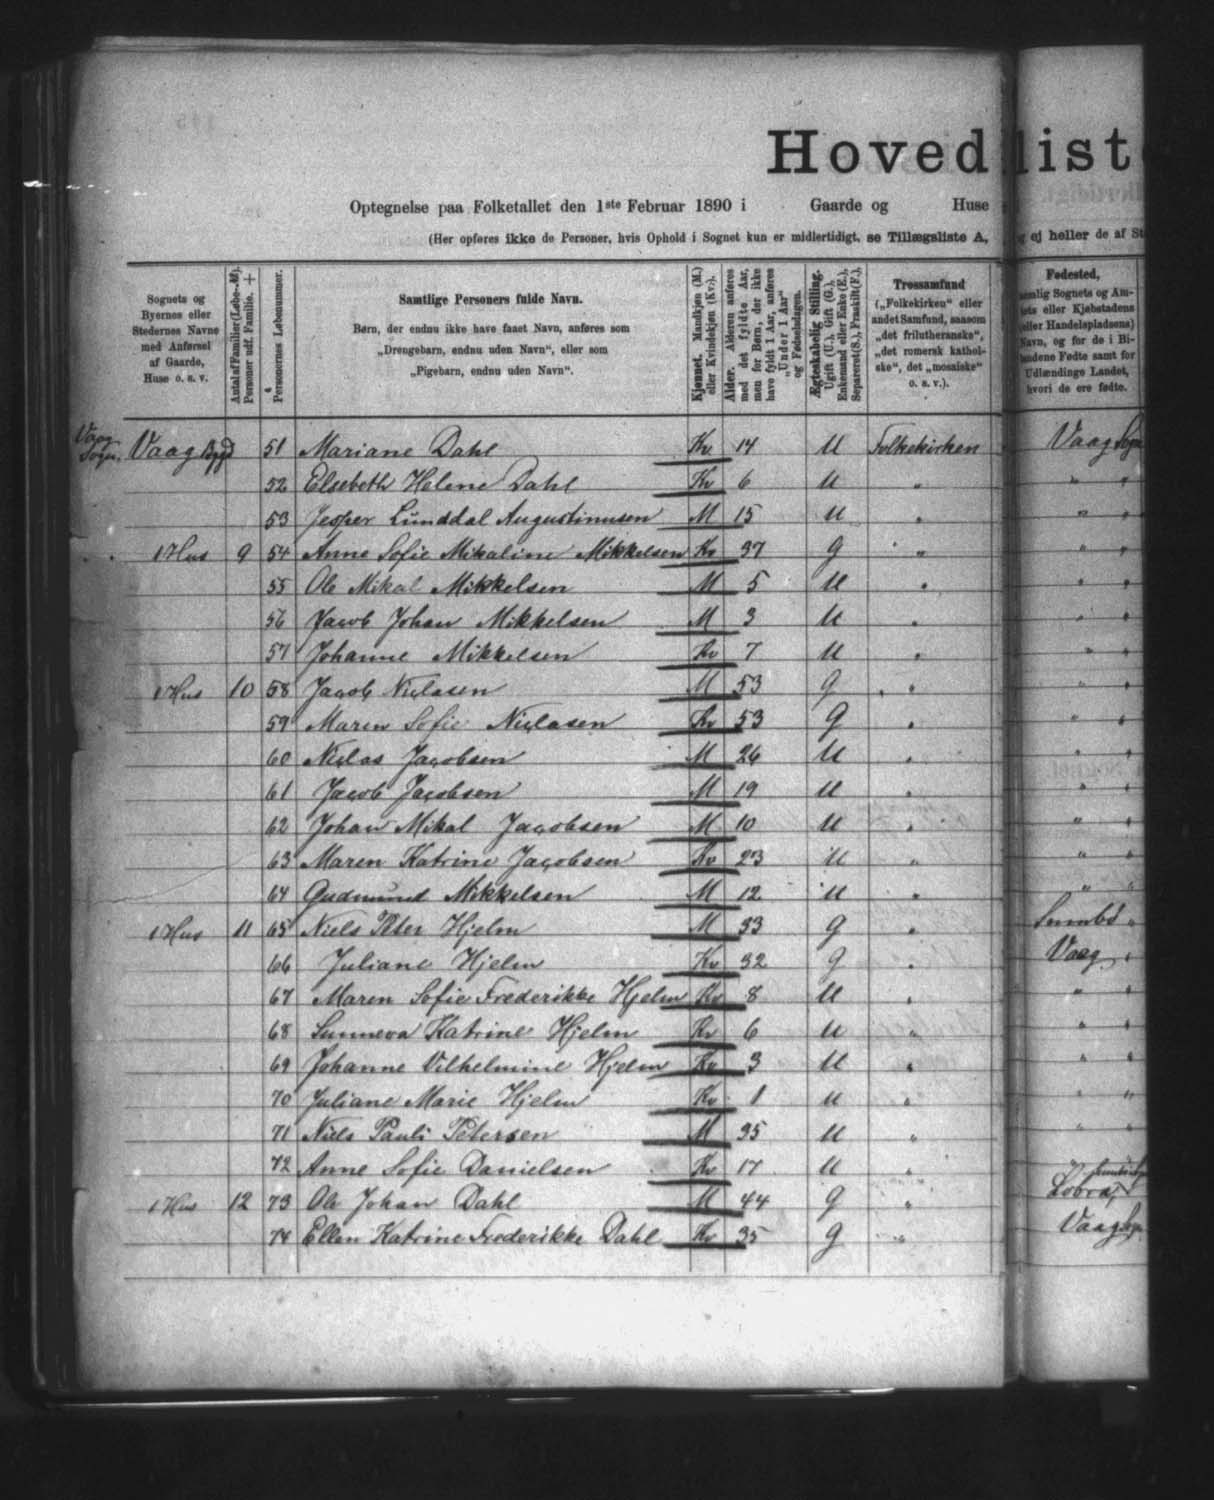 Hovedliste
Optegnelse paa Folketallet den 1ste Februar 1890 i Gaarde og Huse
(Her opføres ikke de Personer, hvis Ophold i Sognet kun er midlertidigt, se Tillægsliste A, ej heller de af
Sognets og Byernes eller Stedernes Navne med Anførsel af Gaarde, Huse o. s. v.
Antal af Familier (Løbe-№). Personer udf. Familie. +
Personernes Løbenummer.
Samtlige Personers fulde Navn.
Børn, der endnu ikke have faaet Navn, anføres som
„Drengebarn, endnu uden Navn", eller som
„Pigebarn, endnu uden Navn".
Kjønnet. Mandkjøn (M.) eller Kvindekjøn (Kv.).
Alder. Alderen anføres med det fyldte Aar, men for Børn, der ikke have fyldt 1 Aar, anføres „Under 1 Aar" og Fødselsdagen.
Ægteskabelig Stilling. Ugift (U.), Gift (G.), Enkemand eller Enke (E.), Separeret (S.), Fraskilt (F.).
Trossamfund („Folkekirken" eller andet Samfund, saasom „det frilutheranske", „det romersk katholske", det „mosaiske" o. s. v.).
Fødested,
Sognets og Am-
eller Kjøbstadens
eller Handelspladsens)
Navn, og for de i Bi-
landene Fødte samt for
Udlændinge Landet,
hvori de ere fødte.
Vaag Sogn. Vaag Bygd 51 Mariane Dahl Kv 14 U Folkekirken Vaag Sogn
52 Elsebeth Helene Dahl Kv 6 U " " "
53 Jesper Lunddal Augustinusen M 15 U " " "
1 Hus 9 54 Anne Sofie Mikaline Mikkelsen Kv 37 g " " "
55 Ole Mikal Mikkelsen M 5 U " " "
56 Jacob Johan Mikkelsen M 3 U " " "
57 Johanne Mikkelsen Kv 7 U " " "
1 Hus 10 58 Jacob Niclasen M 53 g " " "
59 Maren Sofie Niclasen Kv 53 g " " "
60 Niclas Jacobsen M 26 U " " "
61 Jacob Jacobsen M 19 U " " "
62 Johan Mikal Jacobsen M 10 U " " "
63 Maren Katrine Jacobsen Kv 23 U " " "
64 Gudmund Mikkelsen M 12 U " " "
1 Hus 11 65 Niels Peter Hjelm M 33 g " Sumbø "
66 Juliane Hjelm Kv 32 g " Vaag "
67 Maren Sofie Frederikke Hjelm Kv 8 U " " "
68 Sunneva Katrine Hjelm Kv 6 U " " "
69 Johanne Vilhelmine Hjelm Kv 3 U " " "
70 Juliane Marie Hjelm Kv 1 U " " "
71 Niels Pauli Petersen M 35 U " " "
72 Anne Sofie Danielsen Kv 17 U "
1 Hus 12 73 Ole Johan Dahl M 44 g "
74 Ellen Katrine Frederikke Dahl Kv 35 g " Vaag Sogn